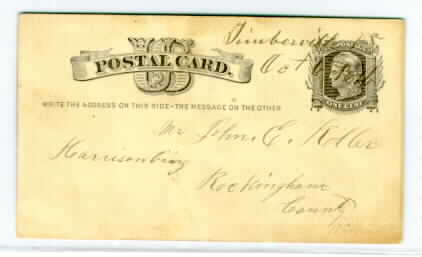 Timberville
Oct
U S
POSTAL CARD.
WRITE THE ADDRESS ON THIS SIDE-THE MESSAGE ON THE OTHER
ONE CENT
Mr John. E. Roller
Harrisonburg
Rockingham
County
Va